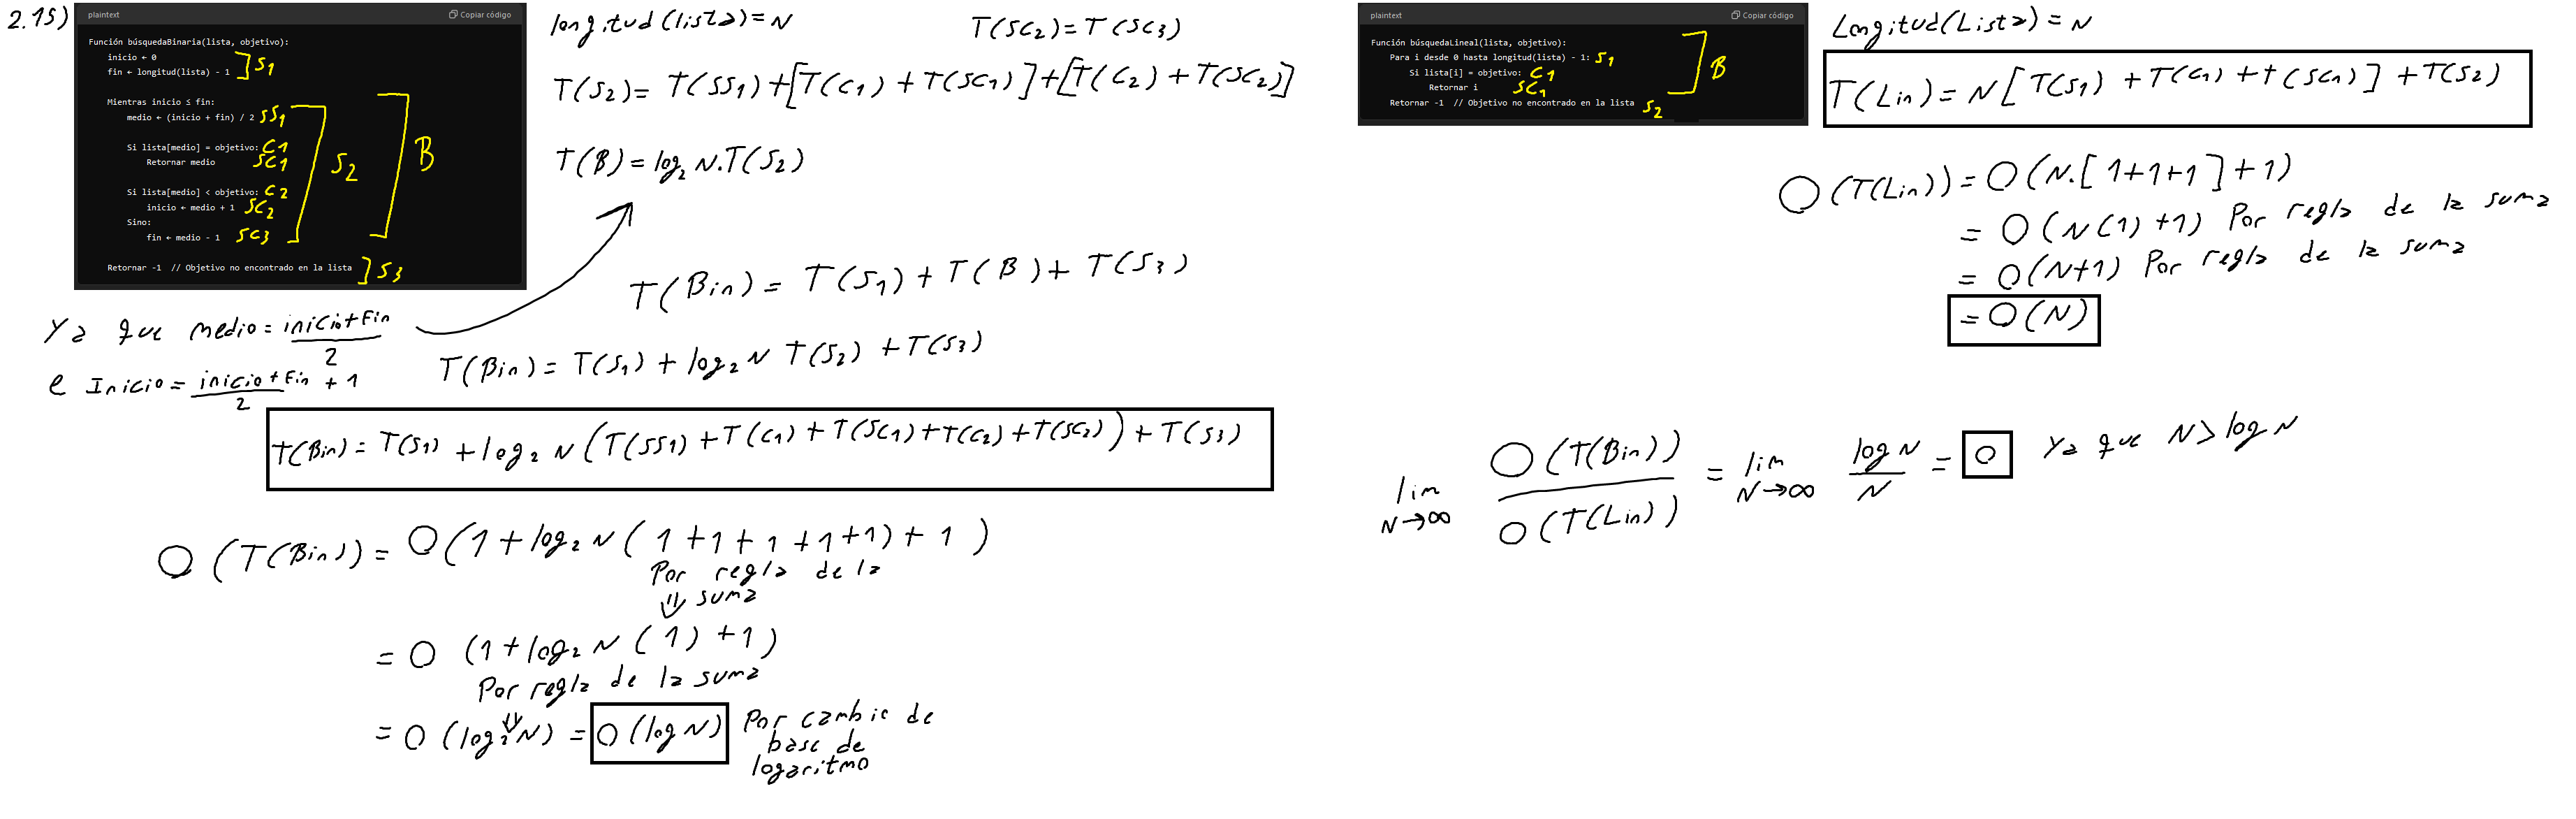 2.15)
plaintext
Copiar código
Función búsquedaBinaria(lista, objetivo):
inicio ← 0
fin ← longitud(lista) - 1 ] S1
Mientras inicio ≤ fin:
medio ← (inicio + fin) / 2 SS1
Si lista[medio] = objetivo: C1
Retornar medio SC1
Si lista[medio] < objetivo: C2
inicio ← medio + 1 SC2
Sino:
fin ← medio - 1 SC3
S2
B
Retornar -1 // Objetivo no encontrado en la lista ] S3
longitud(lista)=N
T(SC2)=T(SC3)
T(S2)= T(SS1)+[T(C1)+T(SC1)]+[T(C2)+T(SC2)]
T(B)=log₂ N.T(S2)
Ya que medio= inicio+Fin / 2
e Inicio= inicio+Fin / 2 + 1
T(Bin)= T(S1)+T(B)+T(S3)
T(Bin)= T(S1)+log₂ N T(S2)+T(S3)
T(Bin)= T(S1)+log₂ N(T(SS1)+T(C1)+T(SC1)+T(C2)+T(SC2))+T(S3)
O(T(Bin))= O(1+log₂ N(1+1+1+1+1)+1)
Por regla de la
⇓ suma
= O (1+log₂ N(1)+1)
Por regla de la suma
⇓
= O(log₂ N) = O(log N) Por cambio de
base de
logaritmo
plaintext
Copiar código
Función búsquedaLineal(lista, objetivo):
Para i desde 0 hasta longitud(lista) - 1: S1
Si lista[i] = objetivo: C1
Retornar i SC1
B
Retornar -1 // Objetivo no encontrado en la lista S2
Longitud(Lista)=N
T(Lin)= N[T(S1)+T(C1)+t(SC1)]+T(S2)
O(T(Lin))= O(N.[1+1+1]+1)
= O(N(1)+1) Por regla de la suma
= O(N+1) Por regla de la suma
= O(N)
lim N→∞ O(T(Bin)) / O(T(Lin)) = lim N→∞ log N / N = 0 Ya que N>log N